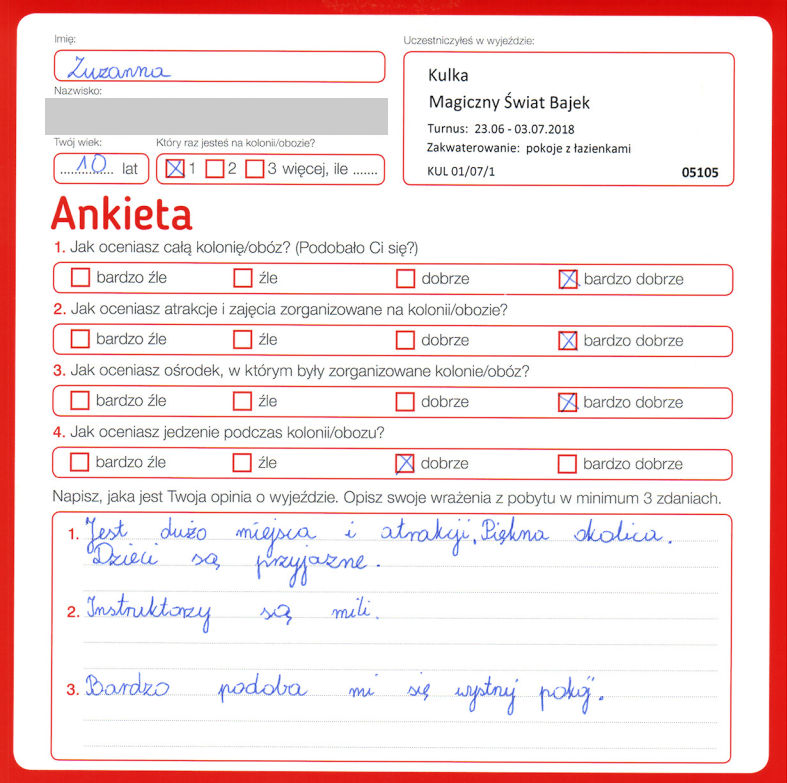 Imię:
Zuzanna
Nazwisko:
Twój wiek:
10 lat
Który raz jesteś na kolonii/obozie?
1 2 3 więcej, ile .......
Uczestniczyłeś w wyjeździe:
Kulka
Magiczny Świat Bajek
Turnus: 23.06 - 03.07.2018
Zakwaterowanie: pokoje z łazienkami
KUL 01/07/1 05105
Ankieta
1. Jak oceniasz całą kolonię/obóz? (Podobało Ci się?)
bardzo źle źle dobrze bardzo dobrze
2. Jak oceniasz atrakcje i zajęcia zorganizowane na kolonii/obozie?
bardzo źle źle dobrze bardzo dobrze
3. Jak oceniasz ośrodek, w którym były zorganizowane kolonie/obóz?
bardzo źle źle dobrze bardzo dobrze
4. Jak oceniasz jedzenie podczas kolonii/obozu?
bardzo źle źle dobrze bardzo dobrze
Napisz, jaka jest Twoja opinia o wyjeździe. Opisz swoje wrażenia z pobytu w minimum 3 zdaniach.
1. Jest dużo miejsca i atrakcji. Piękna okolica.
Dzieci są przyjazne.
2. Instruktorzy są mili.
3. Bardzo podoba mi się wystrój pokoj.